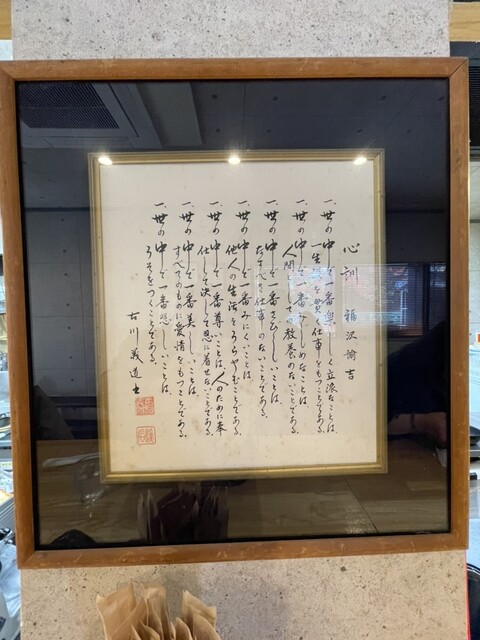 心訓 福沢諭吉
一、世の中で一番楽しく立派なことは
一生涯を貫く仕事をもつことである。
一、世の中で一番みじめなことは
人間として教養のないことである。
一、世の中で一番さびしいことは
たずべき仕事のないことである。
一、世の中で一番みにくいことは
他人の生活をうらやむことである。
一、世の中で一番尊いことは人のために奉
仕して決して恩に着せないことである。
一、世の中で一番美しいことは
すべてのものに愛情をもつことである。
一、世の中で一番悲しいことは
うそをつくことである。
古川義道書